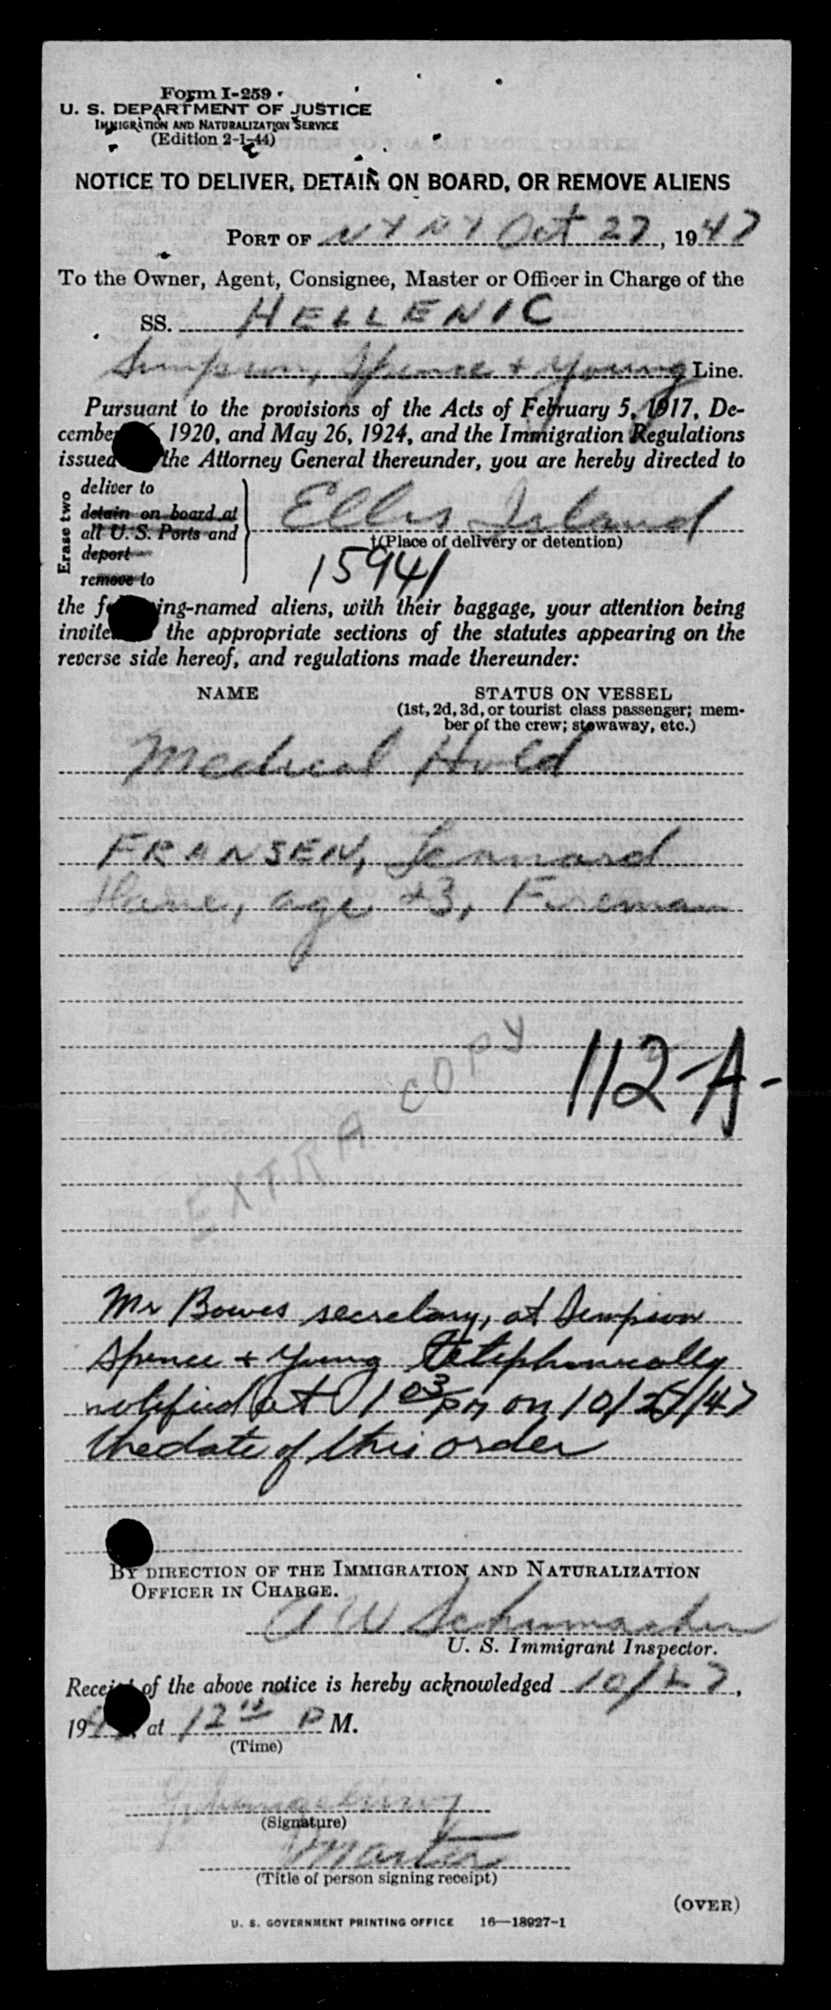 Form I-259
U. S. DEPARTMENT OF JUSTICE
IMMIGRATION AND NATURALIZATION SERVICE
(Edition 2-1-44)
NOTICE TO DELIVER, DETAIN ON BOARD, OR REMOVE ALIENS
PORT OF NY NY Oct 27, 1947
To the Owner, Agent, Consignee, Master or Officer in Charge of the
SS. HELLENIC
Simpson, Spence + Young Line.
Pursuant to the provisions of the Acts of February 5, 1917, De-
cember 1920, and May 26, 1924, and the Immigration Regulations
issued the Attorney General thereunder, you are hereby directed to
Erase two
deliver to
detain on board at
all U. S. Ports and
deport
remove to
Ellis Island
†(Place of delivery or detention)
15941
the following-named aliens, with their baggage, your attention being
invited the appropriate sections of the statutes appearing on the
reverse side hereof, and regulations made thereunder:
NAME STATUS ON VESSEL
(1st, 2d, 3d, or tourist class passenger; mem-
ber of the crew; stowaway, etc.)
Medical Hold
FRANSEN, Lennard
age 43, Fireman
112-A-
EXTRA COPY
Mr Bowes secretary, at Simpson
Spence + Young telephonically
notified at 1 03 pm on 10/27/47
the date of this order
BY DIRECTION OF THE IMMIGRATION AND NATURALIZATION
OFFICER IN CHARGE.
A W Schumacher
U. S. Immigrant Inspector.
Receipt of the above notice is hereby acknowledged 10/27,
194 at 12 P M.
(Time)
(Signature)
Master
(Title of person signing receipt)
(OVER)
U. S. GOVERNMENT PRINTING OFFICE 16—18927-1